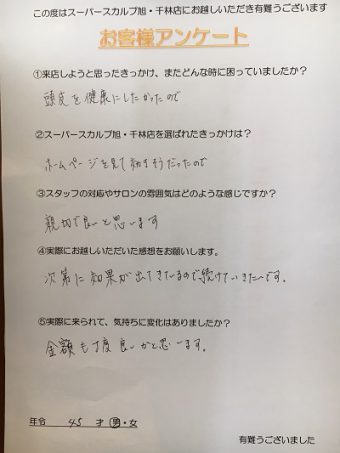 この度はスーパースカルプ旭・千林店にお越しいただき有難うございます
お客様アンケート
①来店しようと思ったきっかけ、またどんな時に困っていましたか？
頭皮を健康にしたかったので
②スーパースカルプ旭・千林店を選ばれたきっかけは？
ホームページを見て効きそうだったので
③スタッフの対応やサロンの雰囲気はどのような感じですか？
親切で良いと思います
④実際にお越しいただいた感想をお願いします。
次第に効果が出てきているので続けていきたいです。
⑤実際に来られて、気持ちに変化はありましたか？
金額も丁度良いかと思います。
年令 45 才 男・女
有難うございました